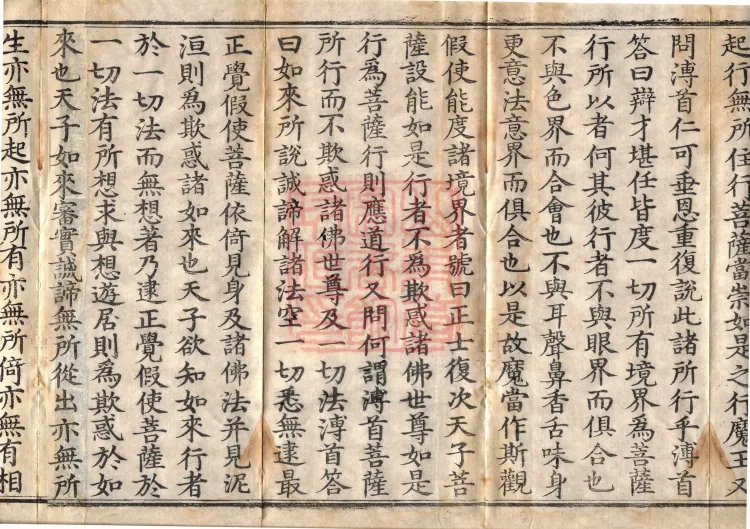 起行無所住行菩薩當崇如是之行魔王又
問溥首仁可垂恩重復說此諸所行乎溥首
答曰辯才堪任皆度一切所有境界為菩薩
行所以者何其彼行者不與眼界而俱合也
不與色界而合會也不與耳聲鼻香舌味身
更意法意界而俱合也以是故魔當作斯觀
假使能度諸境界者號曰正士復次天子菩
薩設能如是行者不為欺惑諸佛世尊如是
行為菩薩行則應道行又問何謂溥首菩薩
所行而不欺惑諸佛世尊及一切法溥首答
曰如來所說誠諦解諸法空一切悉無逮最
正覺假使菩薩依倚見身及諸佛法并見泥
洹則為欺惑諸如來也天子欲知如來行者
於一切法而無想著乃逮正覺假使菩薩於
一切法有所想求與想遊居則為欺惑於如
來也天子如來審實誠諦無所從出亦無所
生亦無所起亦無所有亦無所倚亦無有相